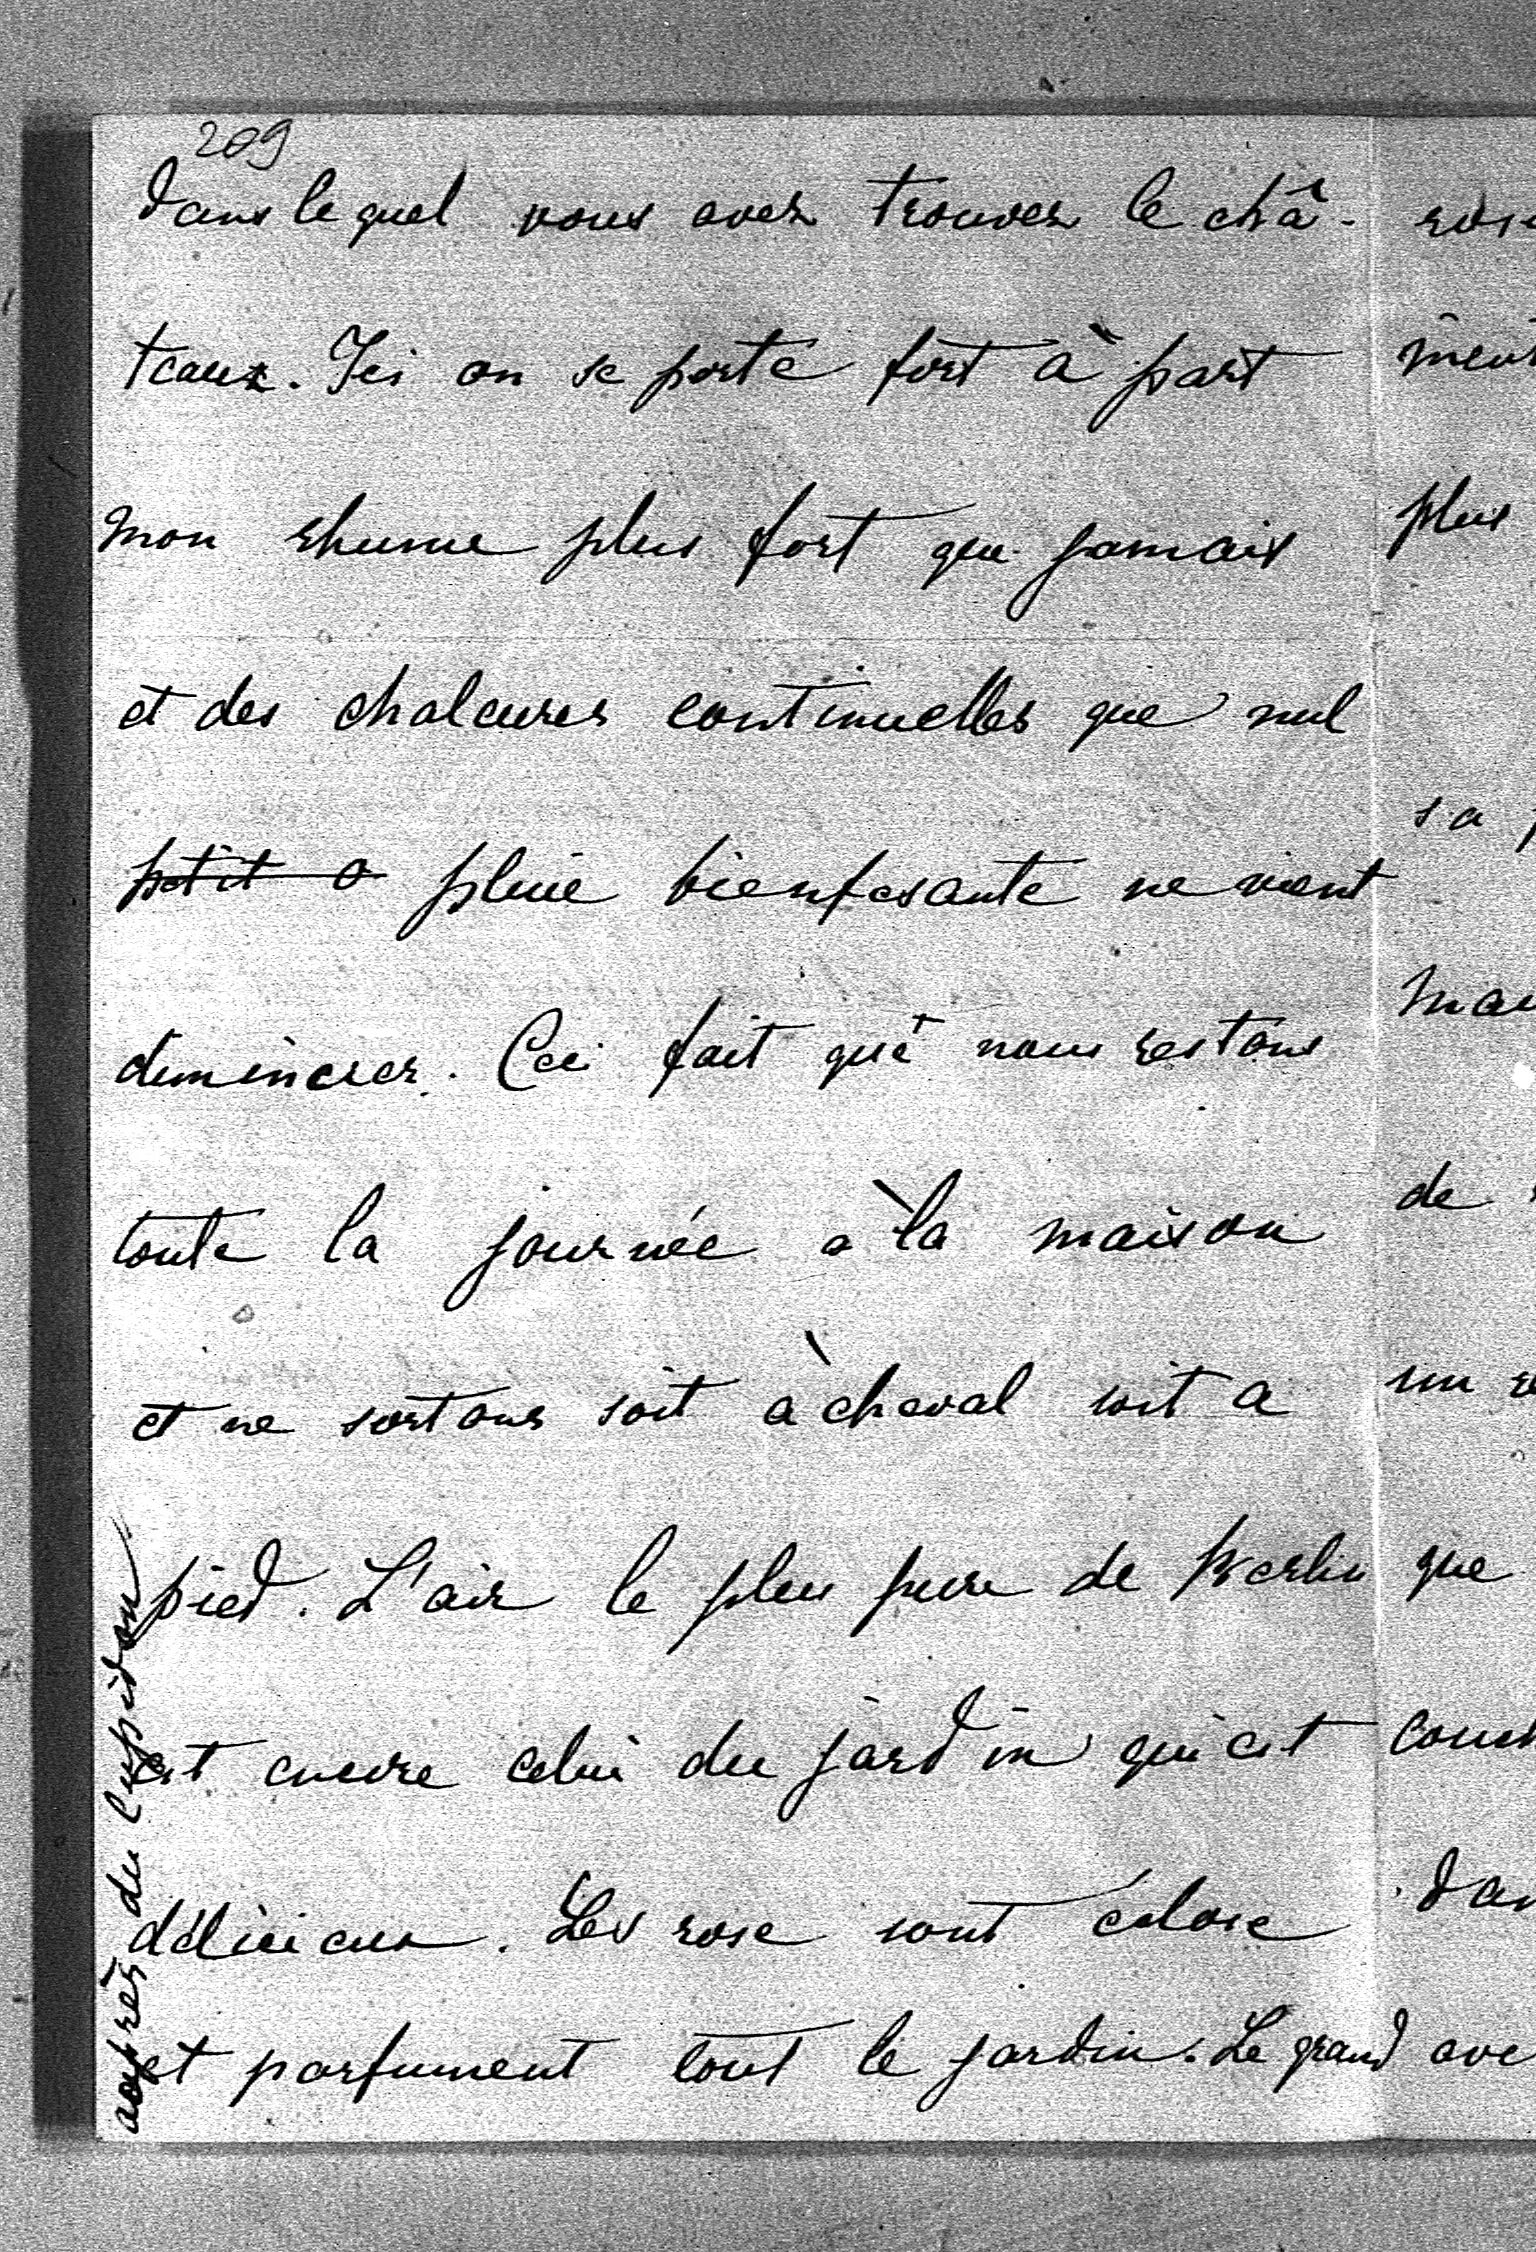 209
dans le quel vous avez trouvez le châ-
teaux. Ici on se porte fort à part
mon rhume plus fort que jamais
et des chaleures continuelles que nul
petit o pluie bienfesante ne vient
diminerer. Ceci fait que nous restons
toute la journée à la maison
et ne sortons soit à cheval soit a
pied. L'air le plus pure de Berlin
est encore celui du jardin qui est
délicieux. Les rose sont éclose
et parfument tout le jardin. Le grand
auprès du Cupidon
plus
sa
de
un
que